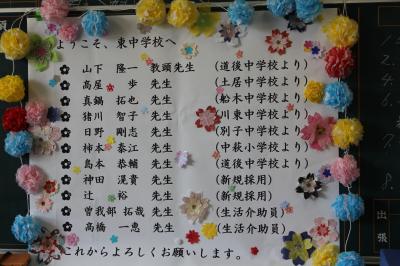 ようこそ、東中学校へ
山下 隆一 教頭先生 (道後中学校より)
高屋 歩 先生 (土居中学校より)
真鍋 拓也 先生 (船木中学校より)
猪川 智子 先生 (川東中学校より)
日野 剛志 先生 (別子中学校より)
柿本 泰江 先生 (中萩小学校より)
島本 恭輔 先生 (道後中学校より)
神田 滉貴 先生 (新規採用)
辻 裕 先生 (新規採用)
曽我部 拓哉 先生 (生活介助員)
高橋 一恵 先生 (生活介助員)
これからよろしくお願いします。
出張